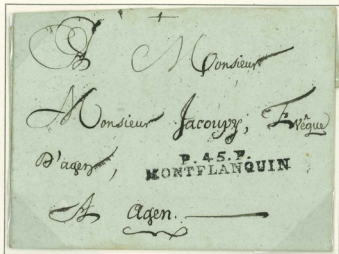 A Monsieur
Monsieur Jacoupy, Evêque
D'agen,
P. 45. P.
MONTFLANQUIN
A agen.